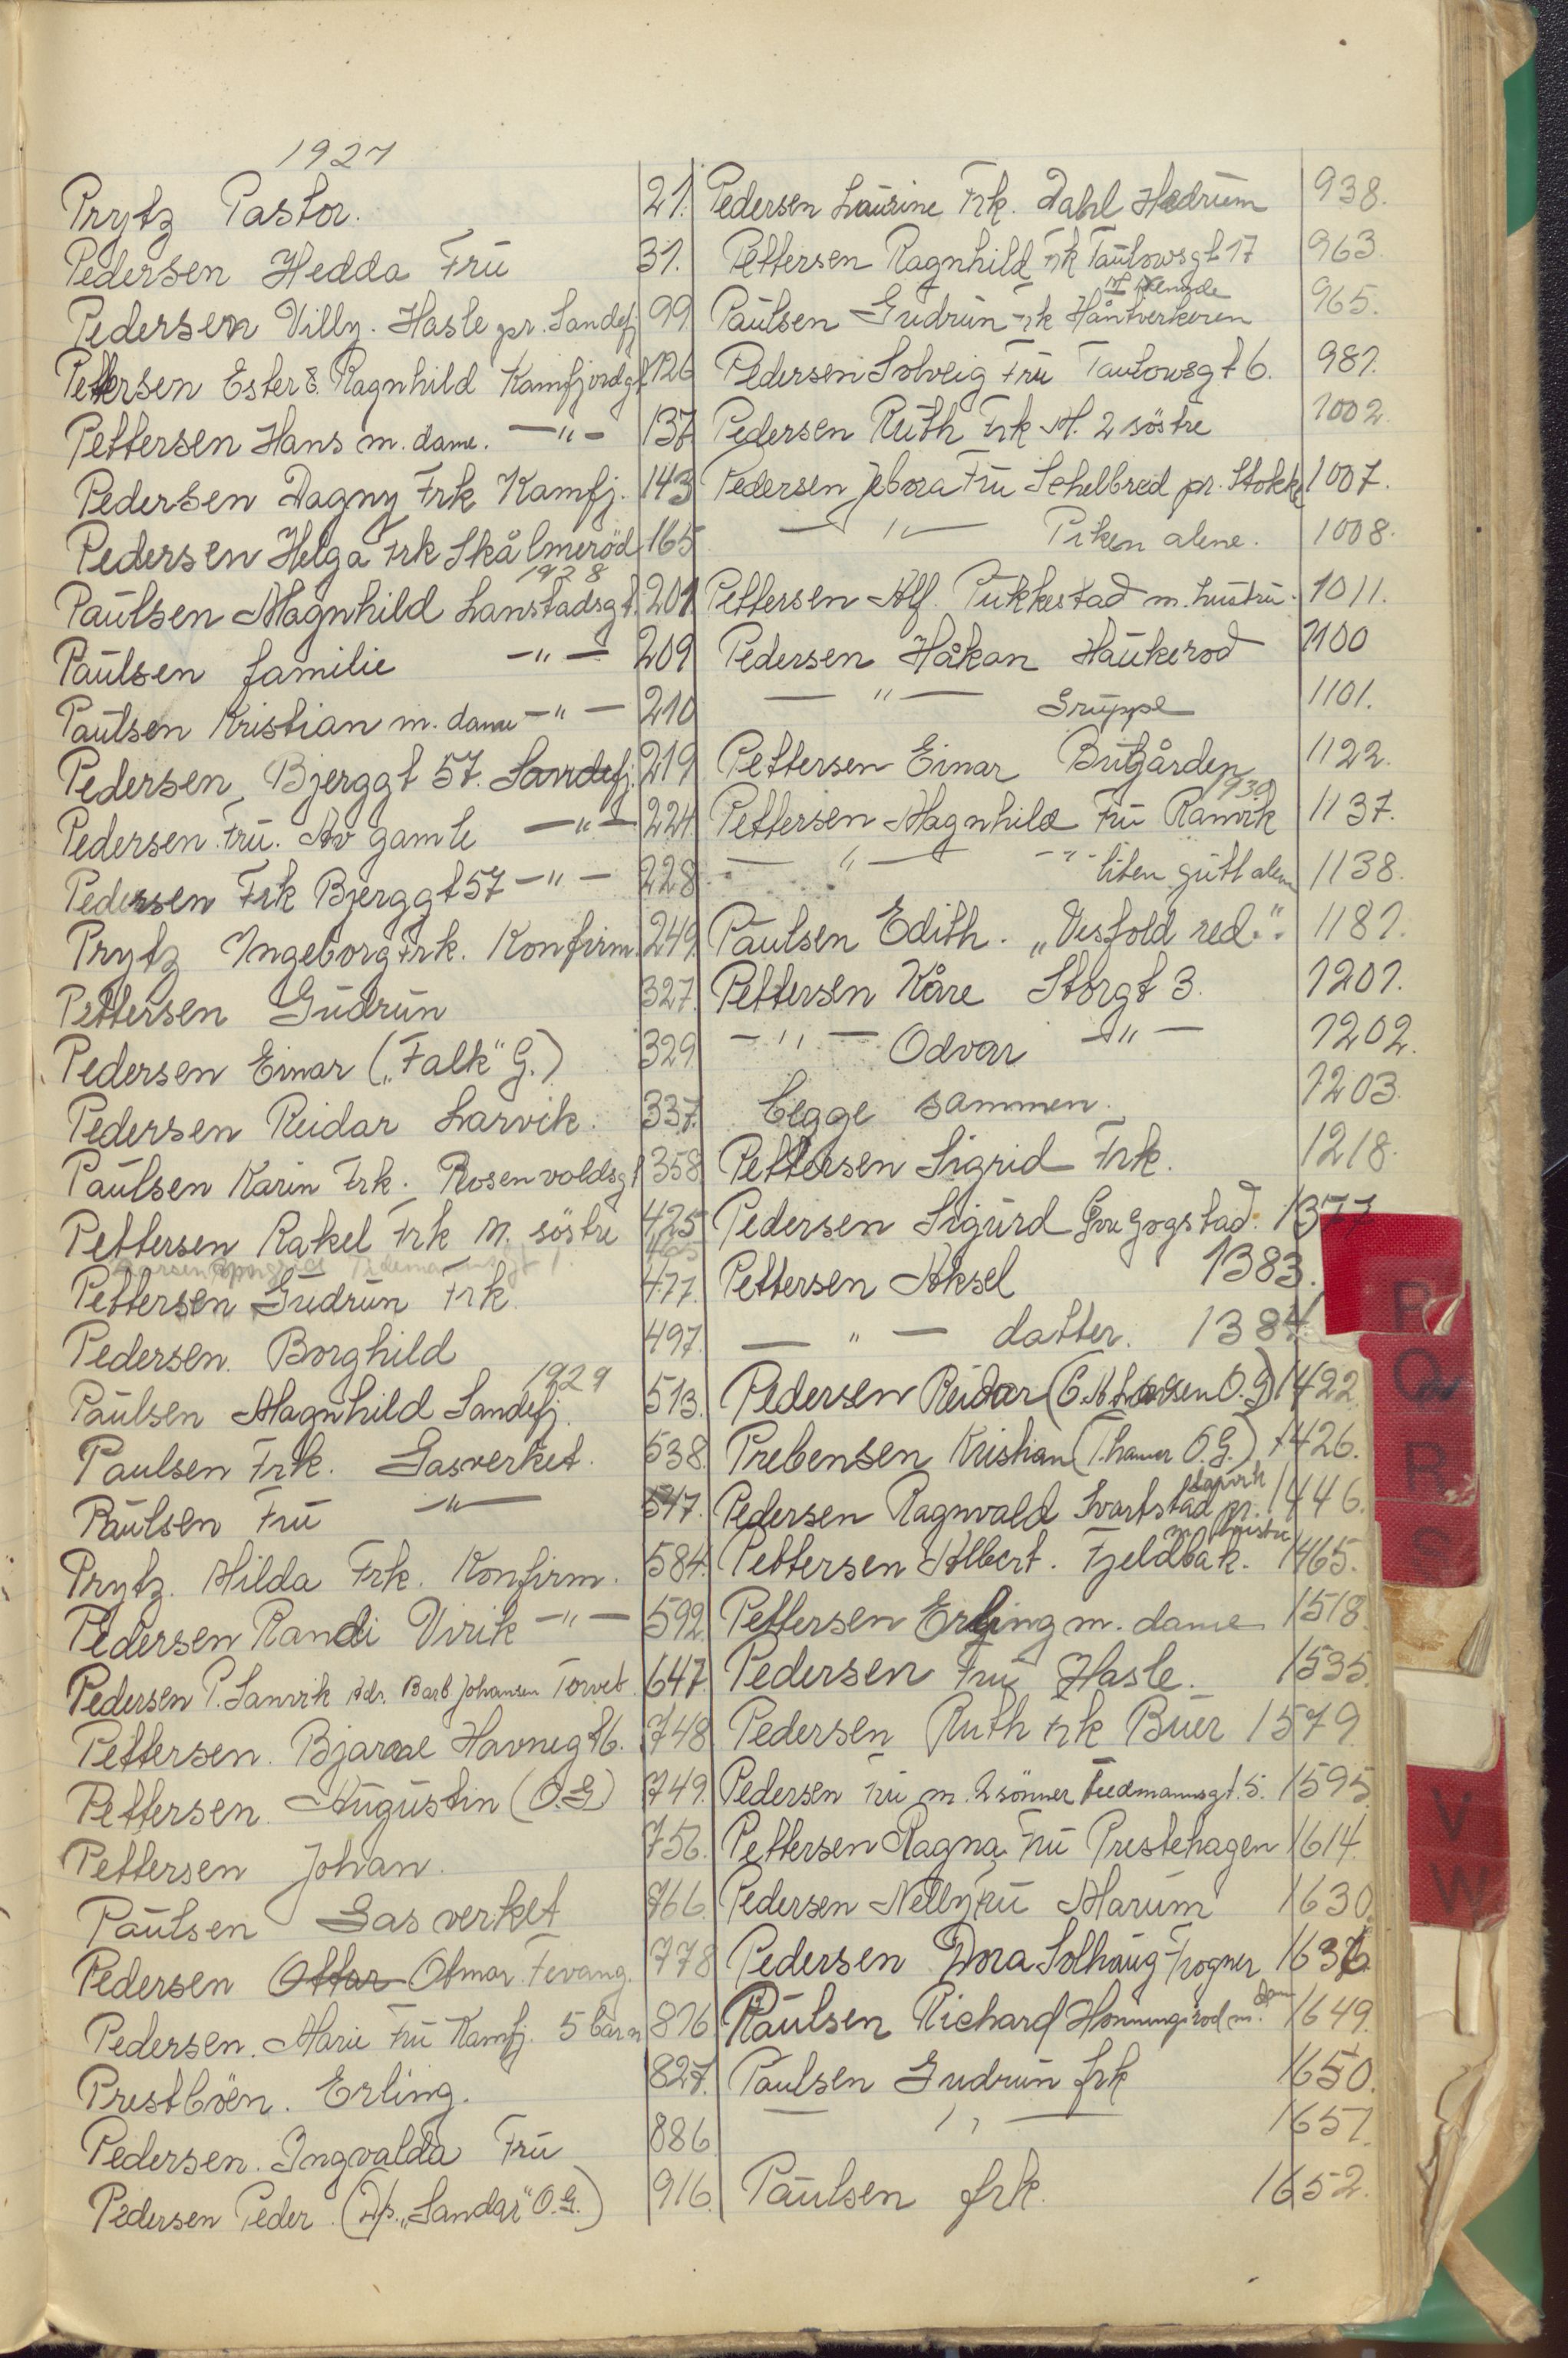 1927
Prytz Pastor. 21.
Pedersen Hedda Frü 31.
Pedersen Villy. Hasle pr. Sandefj 99
Pettersen Ester & Ragnhild Kamfjordgt 126
Pettersen Hans m. dame. —"— 137
Pedersen Dagny Frk Kamfj. 143
Pedersen Helga Frk Skålmeröd 165
1928
Paülsen Magnhild Lanstadsgt. 201.
Paülsen familie —"— 209
Paülsen Kristian m. dame —"— 210
Pedersen Bjerggt 57. Sandefj. 219
Pedersen Frü. Av gamle —"— 224
Pedersen Frk Bjerggt 57 —"— 228
Prytz Ingeborg Frk. Konfirm. 249.
Pettersen Güdrün 327.
Pedersen Einar („Falk" G.) 329
Pedersen Reidar Larvik. 337.
Paülsen Karin Frk. Rosenvoldsgt 358
Pettersen Rakel Frk M. söstre 425
Pettersen Güdrün Frk. 477.
Pedersen. Borghild 497.
1929
Paülsen Magnhild Sandefj. 513.
Paulsen Frk. Gasverket. 538.
Paülsen Frü —"— 547.
Prytz. Hilda Frk. Konfirm. 584.
Pedersen Randi Virik —"— 592.
Pedersen P. Sanvik Adr. Barb Johansen Torvet 647.
Pettersen. Bjarne Havnegt 6. 748
Pettersen. Aügüstin (O.G) 749.
Pettersen Johan. 756.
Paülsen Gasverket 766.
Pedersen Ottar Otmar Fevang. 778
Pedersen. Marie Frü Kamfj. 5 barn 816
Prestböen. Erling. 827.
Pedersen. Ingvalda Frü 886
Pedersen Peder. (D/s. „Sandar" O.G.) 916.
Pedersen Laürine Frk. Dahl Hedrüm 938.
Pettersen Ragnhild Frk Taülowsgt 17 963
Paülsen Güdrün Frk Håntverkeren 965.
Pedersen Solveig Frü Taulowsgt 6. 981.
Pedersen Rüth Frk M. 2 söstre 1002.
Pedersen Jebora Frü Schelbred pr. Stokke 1007.
—"— Piken alene. 1008.
Pettersen Alf. Pükkestad m. hüstrü. 1011.
Pedersen Håkan Haükerod 1100
—"— Grüppe 1101.
Pettersen Einar Bügården 1122.
1930
Pettersen Magnhild Frü Ranvik 1137.
—"— —"— liten gütt alene 1138.
Paülsen Edith. „Vesfold red." 1181.
Pettersen Kåre Storgt 3. 1201.
—"— Odvar —"— 1202.
begge sammen. 1203.
Pettersen Sigrid Frk. 1218.
Pedersen Sigürd Gogstad. 1377
Pettersen Aksel 1383.
—"— datter. 1384.
Pedersen Reidar (C.A. Larsen O.G) 1422.
Prebensen Kristian (Thamer O.G.) 1426.
Pedersen Ragnvald Svartstad pr. Larvik 1446.
Pettersen Albert. Fjeldbak. m hustru 1465.
Pettersen Erling m. dame 1518.
Pedersen Frü Hasle. 1535.
Pedersen Ruth Frk Buer 1579.
Pedersen Frü m. 2 sönner Tiedmannsgt. 5. 1595
Pettersen Ragna Frü Prestehagen 1614.
Pedersen Nelly Frü Marüm 1630.
Pedersen Dora Solhaüg Frogner 1636
Paülsen Richard Honningsrod m. dame 1649.
Paulsen Gudrun frk 1650.
—"— 1651.
Paülsen frk. 1652.
P
Q
R
S
V
W